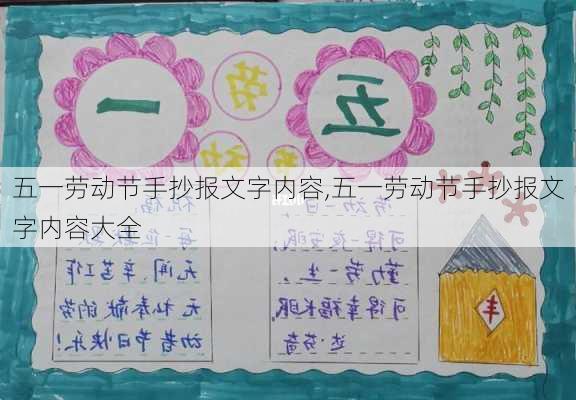 五一
劳
五一劳动节手抄报文字内容,五一劳动节手抄报文
字内容大全
劳动
日
可得一夜安眠,
勤劳一生,
可得幸福长眠
达·芬奇
祝福
每一位默默
无闻、辛苦工作
无私奉献的劳
动者节日快乐!
丰